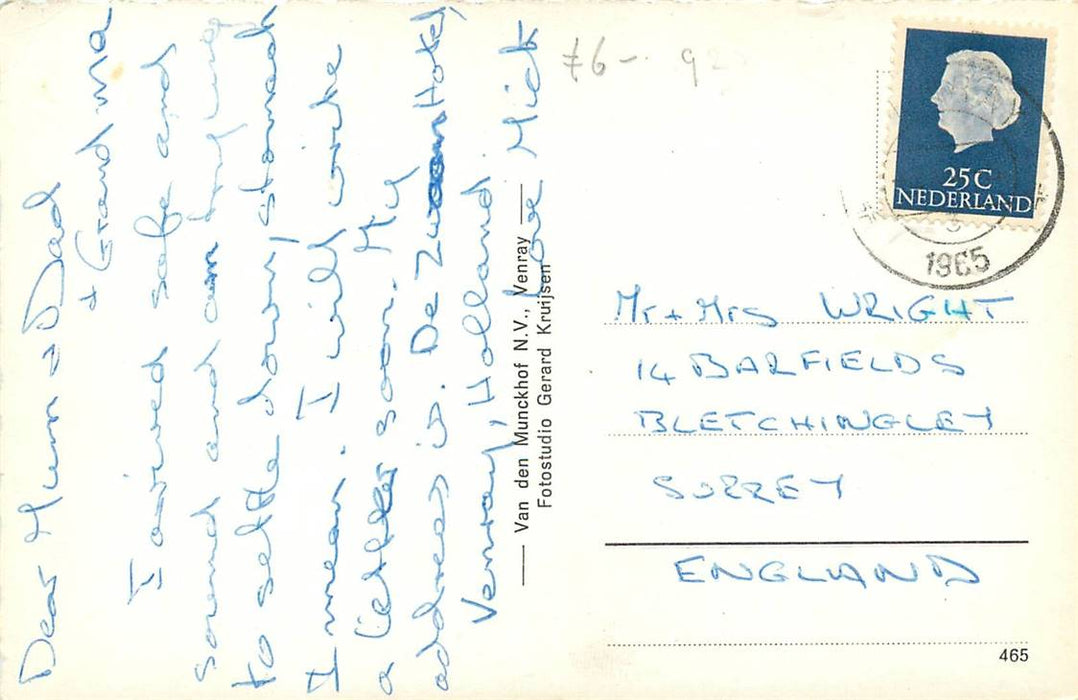 Dear Mum + Dad
+ Grandma
I arrived safe and
sound and am trying
to settle down, stomach
I mean. I will write
a letter soon. My
address is. De Zwaan Hotel,
Venray, Holland
Love Mick
Van den Munckhof N.V., Venray
Fotostudio Gerard Kruijsen
76-
25C
NEDERLAND
1965
Mr + Mrs WRIGHT
14 BARFIELDS
BLETCHINGLEY
SURREY
ENGLAND
465